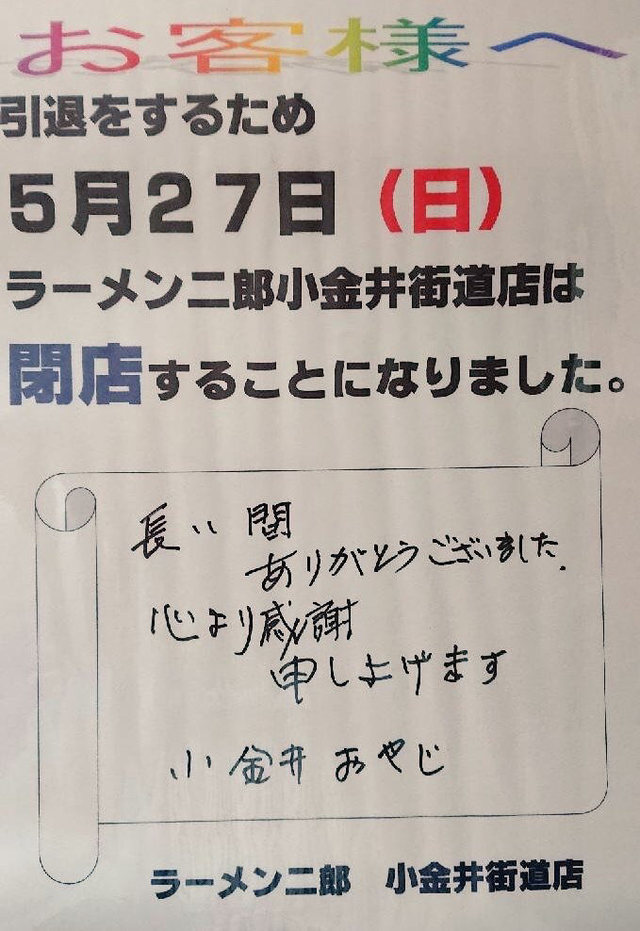 お客様へ
引退をするため
５月２７日（日）
ラーメン二郎小金井街道店は
閉店することになりました。
長い間
ありがとうございました．
心より感謝
申し上げます
小金井おやじ
ラーメン二郎　小金井街道店